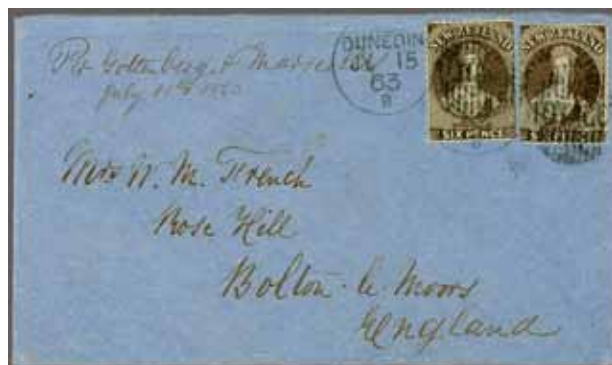 Per Gottenberg & Marseilles
July 15th 1863
DUNEDIN
JY 15
63
NEW ZEALAND
SIX PENCE
NEW ZEALAND
SIX PENCE
Mrs W. M. French
Rose Hill
Bolton-le-Moors
England